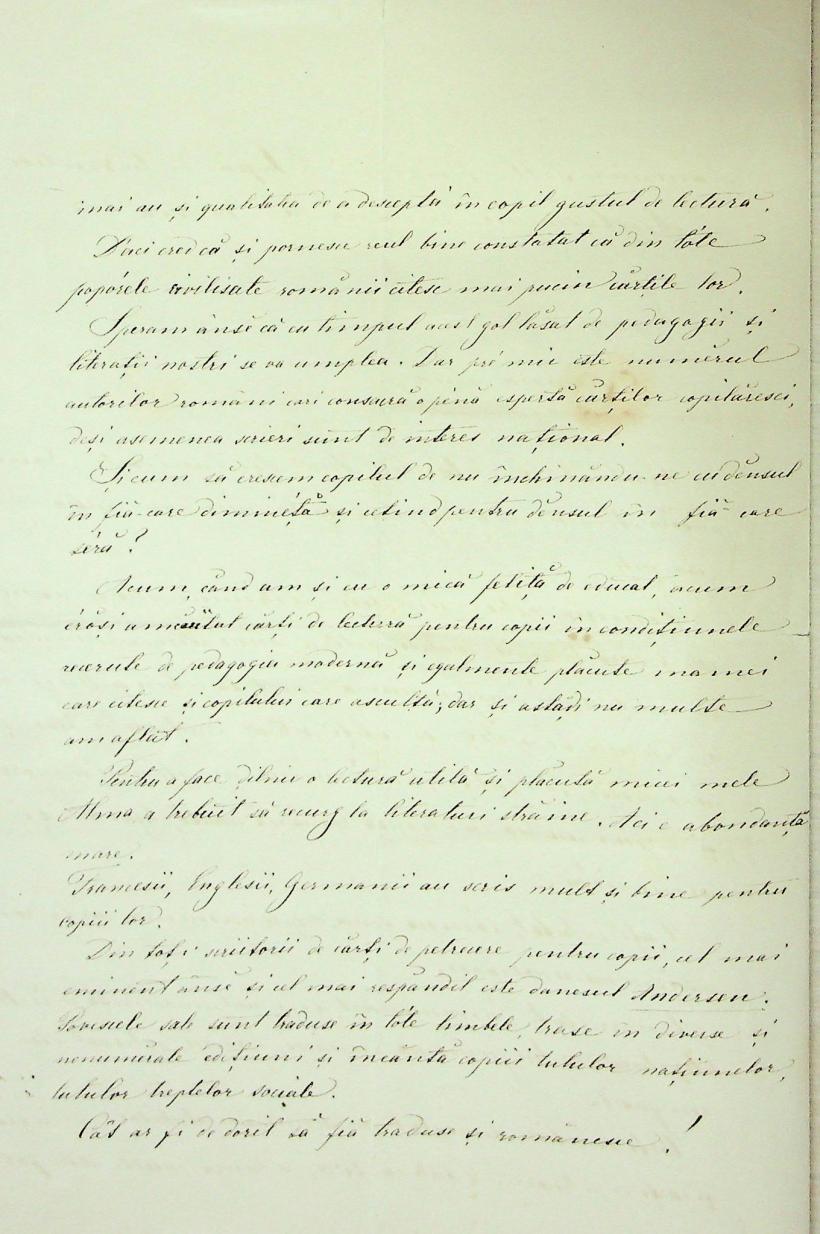 mai au și qualitatea de a desceptá în copil gustul de lectură.
D'aci cred că și pornesce reul bine constatat că din tóte
popórele civilisate românii citesc mai pucin cărțile lor.
Speram ânse că cu timpul acest gol lăsat de pedagogii și
literații nostri se va umplea. Dar pré mic este numěrul
autorilor români cari consacră o pénă espertă cărților copilăresci,
deși asemenea scrieri sunt de interes național.
Și cum să crescem copilul de nu închinându-ne cu dênsul
în fiă-care dimineță și cetind pentru dênsul în fiă-care
séră?
Acum, când am și eu o mică fetiță de educat, acum
érăși am căutat cărți de lectură pentru copii în condițiunele
cerute de pedagogia modernă și egalmente plăcute mamei
care citesce și copilului care ascultă; dar și astăḑi nu multe
am aflat.
Pentru a face ḑilnic o lectură utilă și plăcută micei mele
Alma a trebuit să recurg la literaturi străine. Aci e abondanță
mare.
Francesii, Englesii, Germanii au scris mult și bine pentru
copiii lor.
Din toți scriitorii de cărți de petrecere pentru copii, cel mai
eminent ânse și cel mai respândit este danesul Andersen.
Povescele sale sunt traduse în tóte limbele, trase în diverse și
nenumerate edițiuni și încântă copiii tutulor națiunelor,
tutulor treptelor sociale.
Cât ar fi de dorit să fiă traduse și românesce!